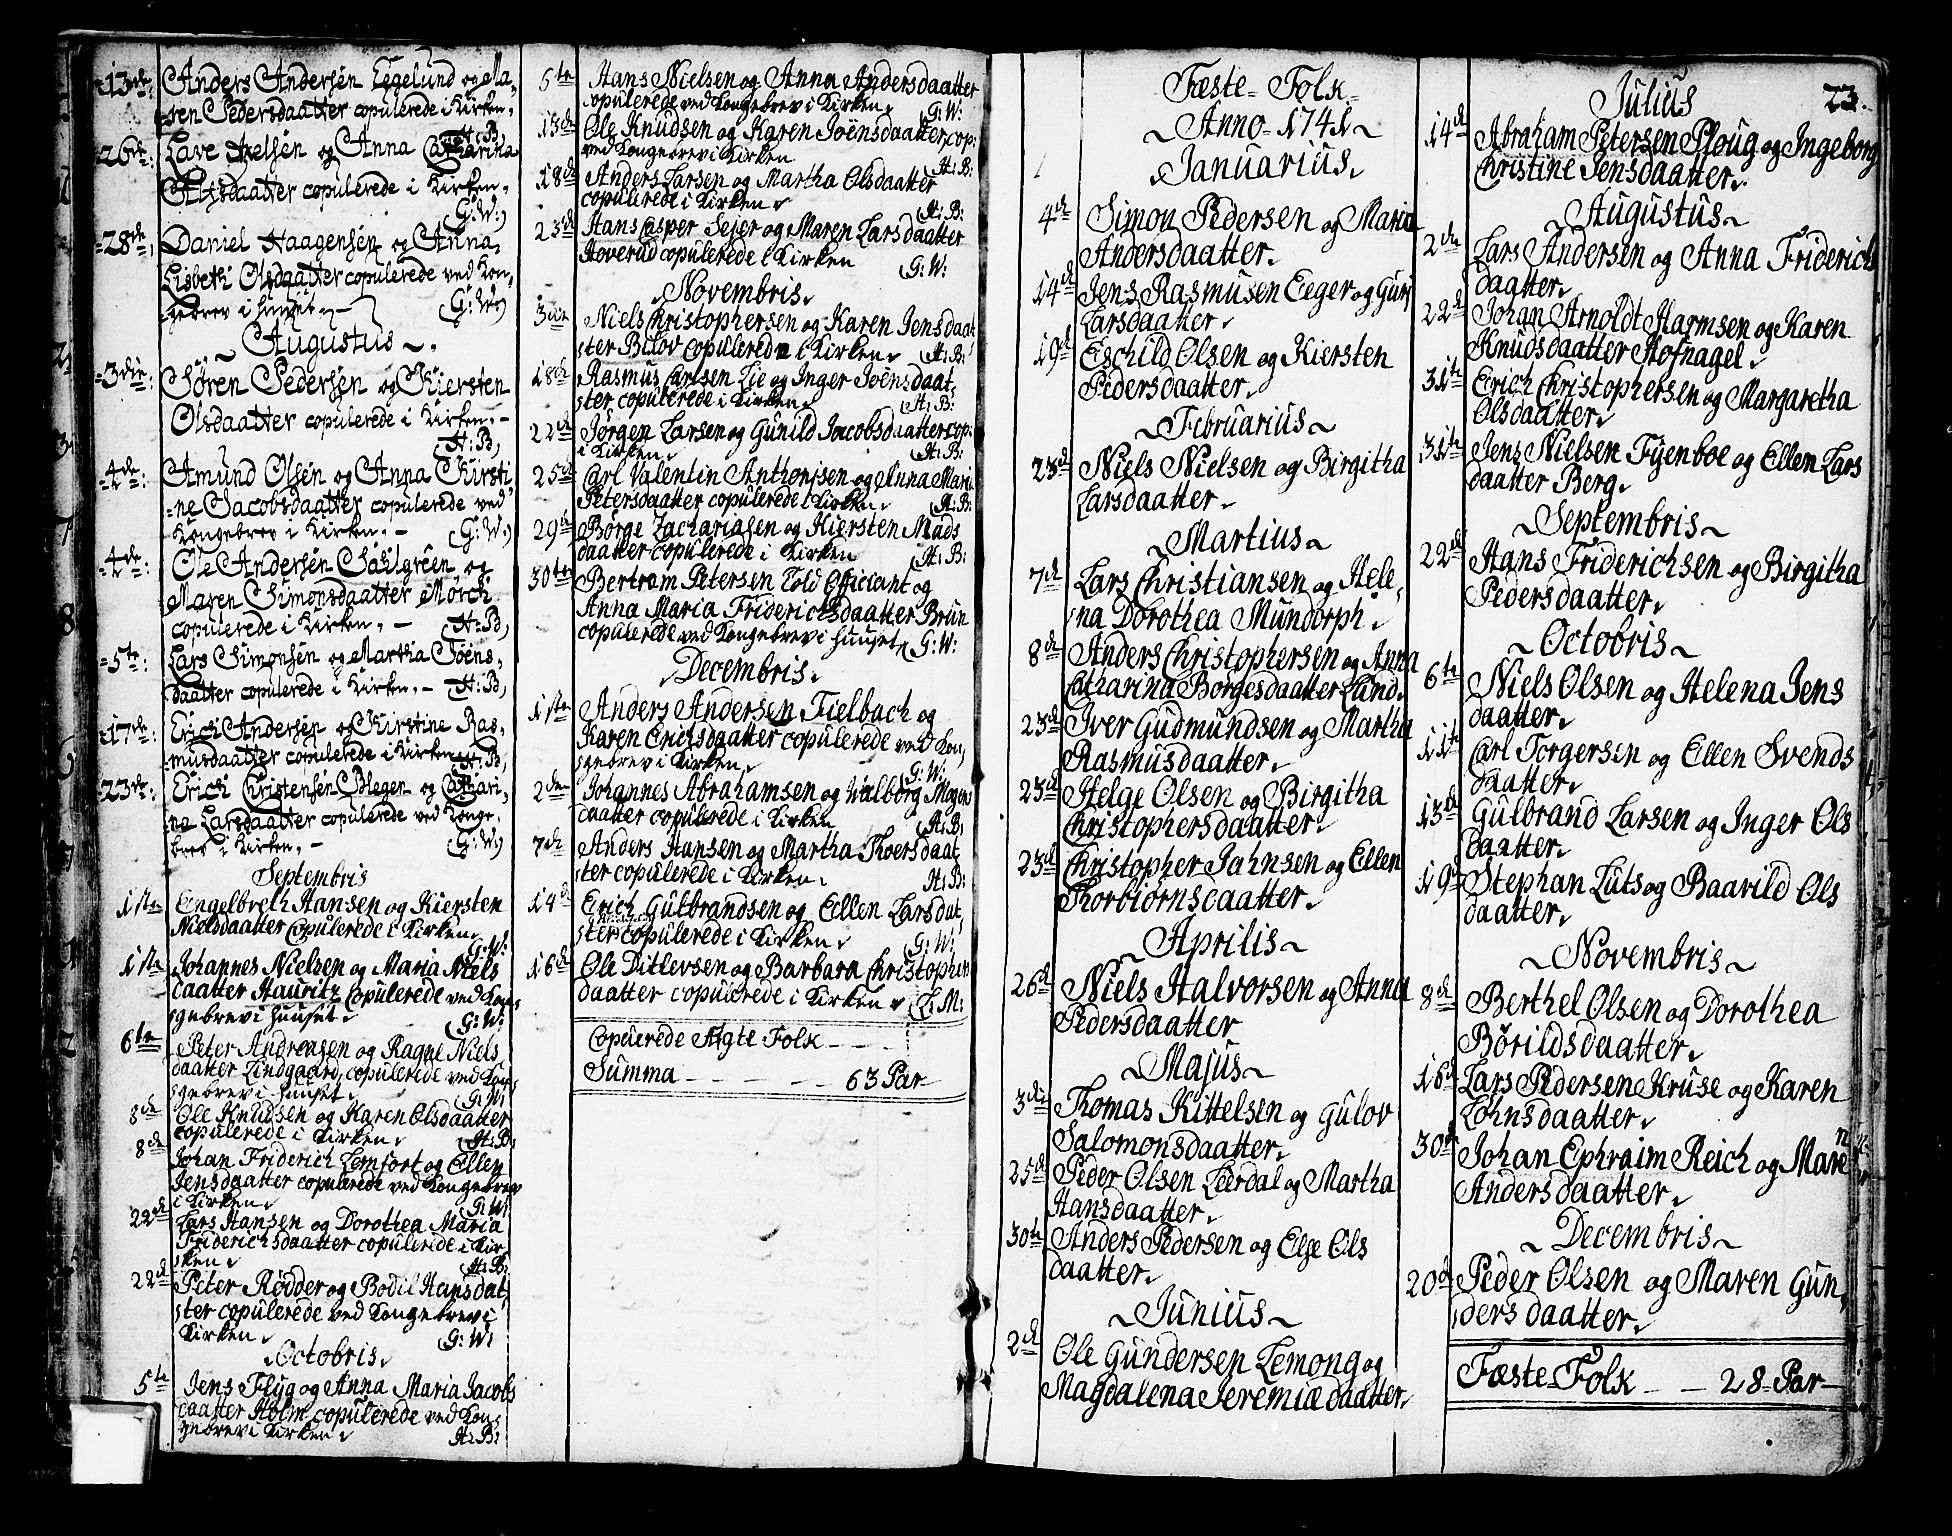 13de: Anders Andersen Eegelund og Ma-
ren Pedersdaatter copulerede i Kirken.
H:B,
26de: Lave Axelsen og Anna Catharina
Alysdaatter copulerede i Kirken.
G:W:
28de: Daniel Haagensen og Anna
Lisbeth Olsdaatter copulerede ved Kon-
gebrev i huuset. G:W:
Augustus
3die: Søren Pedersen og Kiersten
Olsdaatter copulerede i Kirken.
H:B,
4de: Amund Olsen og Anna Kirsti-
ne Jacobsdaatter copulerede ved
Kongebrev i Kirken. G:W:
4de: Ole Andersen Sahlgreen og
Maren Simonsdaatter Mørch
copulerede i Kirken. H:B,
5te: Lars Simonsen og Martha Joens-
daatter copulerede i Kirken. H:B,
17de: Erich Andersen og Kirstine Ras-
musdaatter copulerede i Kirken H:B,
23de: Erich Christensen Bleger og Cathari-
na Larsdaatter copulerede ved Konge-
brev i Kirken. G:W:
Septembris
1ste Engelbreth Hansen og Kiersten
Nielsdaatter Copulerede i Kirken
G:W:
1ste Johannes Nielsen og Maria Niels
daatter Hauritz Copulerede ved Kon-
gebrev i huuset. G:W:
6te Peter Andreasen og Ragne Niels
daatter Lindgaard, copulerede ved Kon-
gebrev i huuset. G:W:
8de Ole Knudsen og Karen Olsdaatter
copulerede i Kirken. H:B:
8de Johan Friderich Lemfort og Ellen
Jensdaatter copulerede ved Kongebrev
i Kirken. G:W:
22de Lars Hansen og Dorothea Maria
Friderichsdaatter copulerede i Kir-
ken. H:B:
22de Peter Rødder og Bodil Hansdat-
ter copulerede ved Kongebrev i
Kirken. G:W:
Octobris
5te Jens Flyg og Anna Maria Jacobs
daatter Holm copulerede ved Kon-
gebrev i Kirken H:B:
5te Hans Nielsen og Anna Andersdaatter
copulerede ved Kongebrev i Kirken. G:W:
13de Ole Knudsen og Karen Joënsdaatter cop:
ved Kongebrev i Kirken H:B:
18de Anders Larsen og Martha Olsdaatter
copulerede i Kirken. H:B:
23de Hans Casper Sejer og Maren Larsdaatter
Hoverud copulerede i Kirken G:W:
Novembris
3die Niels Christophersen og Karen Jensdaat-
ter Bilov copulerede i Kirken. H:B:
18de Rasmus Carlsen Lie og Inger Joënsdaat-
ter copulerede i Kirken. H:B:
22de Jørgen Larsen og Gunild Jacobsdaatter cop:
i Kirken. H:B:
25de Carl Valentin Anthonisen og Anna Mari
Petersdaatter copulerede i Kirken. H:B:
29de Børge Zachariasen og Kiersten Mads
daatter copulerede i Kirken H:B:
30te Bertram Petersen Told Officiant og
Anna Maria Friderichsdaatter Brun
copulerede ved Kongebrev i huuset. G:W:
Decembris
1ste Anders Andersen Fielbach og
Karen Erichsdaatter copulerede ved Kon-
gebrev i Kirken. G:W:
2den Johannes Abrahamsen og Walborg Mogens
daatter copulerede i Kirken H:B,
7de Anders Hansen og Martha Thoersdaat-
ter copulerede i Kirken. H:B:
14de Erich Gulbrandsen og Ellen Larsdat-
ter copulerede i Kirken. G:W:
16de Ole Ditlevsen og Barbara Christophers
daatter copulerede i Kirken L:M:
Copulerede Ægte Folk
Summa 63 Par
Fæste-Folk
Anno 1741
Januarius
4de Simon Pedersen og Maria
Andersdaatter.
14de Jens Rasmusen Eeger og Guri
Larsdaatter.
19de Eschild Olsen og Kiersten
Pedersdaatter.
Februarius
23de Niels Nielsen og Birgitha
Larsdaatter.
Martius
7de Lars Christiansen og Hele-
na Dorothea Mundorph.
8de Anders Christophersen og Anna
Catharina Børgesdaatter Lund.
23de Iver Gudmundsen og Martha
Rasmusdaatter.
23de Helge Olsen og Birgitha
Christophersdaatter.
23de Christopher Jahnsen og Ellen
Thorbiørnsdaatter.
Aprilis
26de Niels Halvorsen og Anna
Pedersdaatter
Majus
3die Thomas Kittelsen og Gulov
Salomonsdaatter.
25de Peder Olsen Leerdal og Martha
Hansdaatter.
30te Anders Pedersen og Else Ols
daatter.
Junius
2de Ole Gundersen Lemong og
Magdalena Jeremiædaatter.
23.
Julius
14de Abraham Petersen Ploug og Ingeborg
Christine Jensdaatter.
Augustus
2den Lars Andersen og Anna Friderichs
daatter.
22de Johan Arnoldt Harmsen og Karen
Knudsdaatter Hofnagel.
31te Erich Christophersen og Margaretha
Olsdaatter.
31te Jens Nielsen Fyenboe og Ellen Lars
daatter Berg.
Septembris
22de Hans Friderichsen og Birgitha
Pedersdaatter.
Octobris
6te Niels Olsen og Helena Jens
daatter.
11te Carl Torgersen og Ellen Svends
daatter.
13de Gulbrand Larsen og Inger Ols
daatter.
19de Stephan Luts og Baarild Ols
daatter.
Novembris
8de Berthel Olsen og Dorothea
Børildsdaatter.
16de Lars Pedersen Kruse og Karen
Lohnsdaatter.
30te Johan Ephraim Reich og Maren
Andersdaatter.
Decembris
20de Peder Olsen og Maren Gun-
dersdaatter.
Fæste-Folk 28-Par